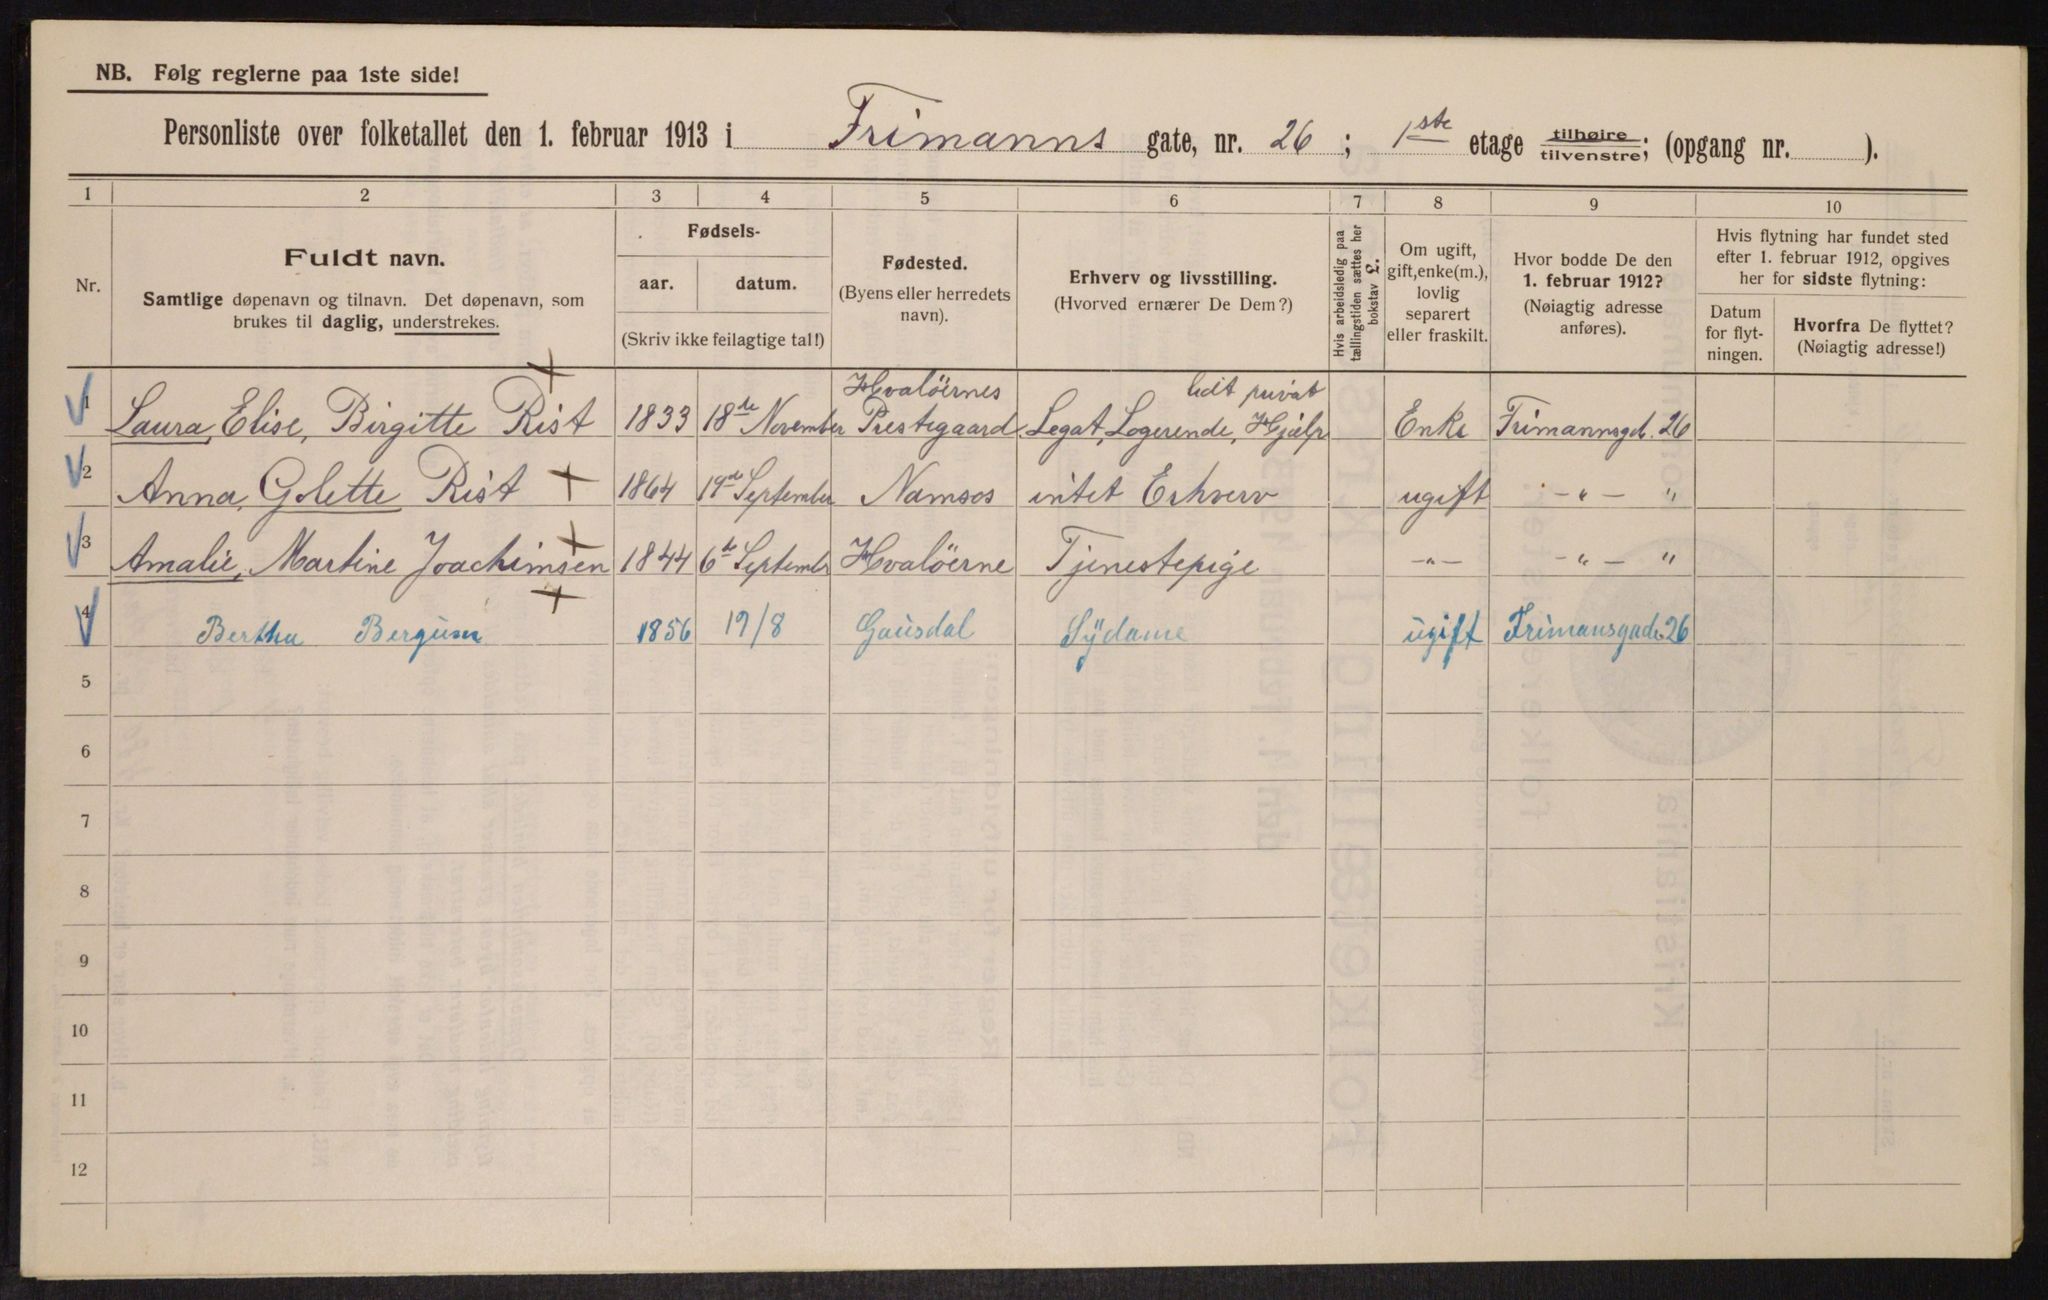 NB. Følg reglerne paa 1ste side!
Personliste over folketallet den 1. februar 1913 i Frimanns gate, nr. 26; 1ste etage tilhøire/tilvenstre; (opgang nr. ).
1 2 3 4 5 6 7 8 9 10
Nr.
Fuldt navn.
Samtlige døpenavn og tilnavn. Det døpenavn, som
brukes til daglig, understrekes.
Fødsels-
aar. datum.
(Skriv ikke feilagtige tal!)
Fødested.
(Byens eller herredets
navn).
Erhverv og livsstilling.
(Hvorved ernærer De Dem?)
Hvis arbeidsledig paa
tællingstiden sættes her
bokstav L.
Om ugift,
gift, enke(m.),
lovlig
separert
eller fraskilt.
Hvor bodde De den
1. februar 1912?
(Nøiagtig adresse
anføres).
Hvis flytning har fundet sted
efter 1. februar 1912, opgives
her for sidste flytning:
Datum
for flyt-
ningen.
Hvorfra De flyttet?
(Nøiagtig adresse!)
Hvaløernes lidt privat
1 Laura, Elise, Birgitte Rist 1833 18de November Prestegaard Legat, Logerende, Hjælp Enke Frimannsgd. 26
2 Anna, Golette Rist 1864 19de September Namsos intet Erhverv ugift -"- "
3 Amalie, Martine Joachimsen 1844 6te September Hvaløerne Tjenestepige -"- -"- "
4 Bertha Bergum 1856 19/8 Gausdal Sydame ugift Frimansgade 26
5
6
7
8
9
10
11
12